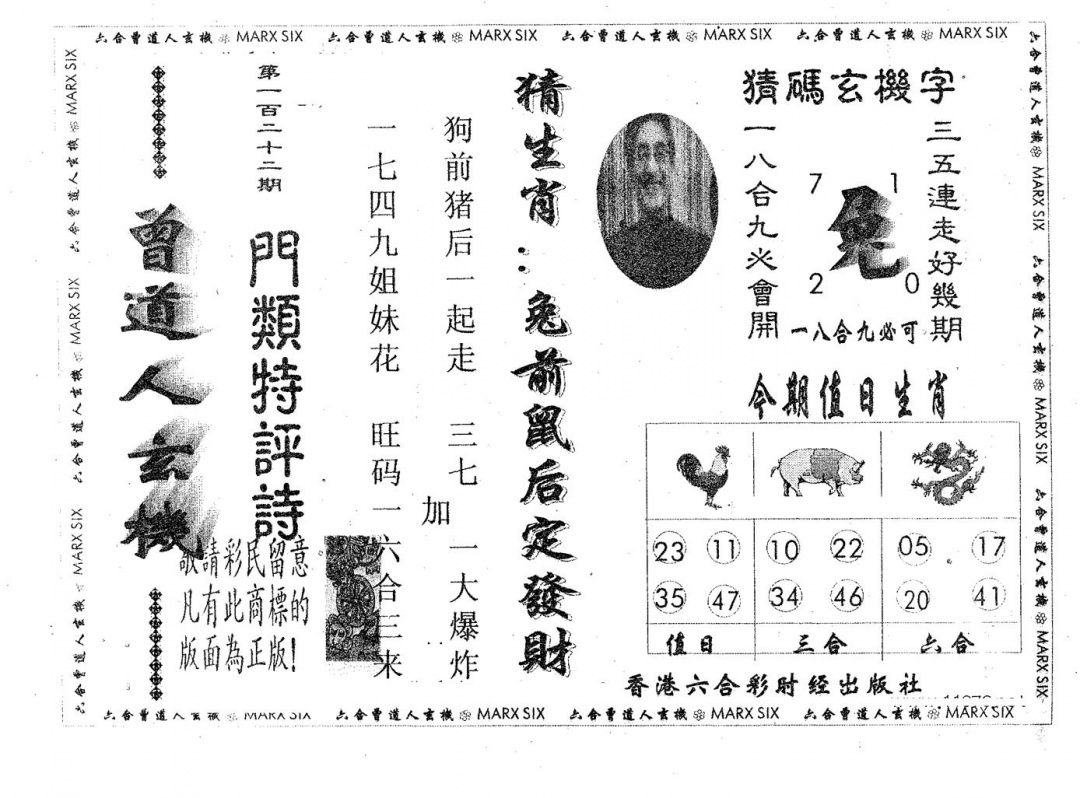 六合曾道人玄機 MARX SIX 六合曾道人玄機 MARX SIX 六合曾道人玄機 MARX SIX 六合曾道人玄機 MARX SIX
猜碼玄機字
三五連走好幾期
一八合九必會開
7 1
兔
2 0
一八合九必可
今期值日生肖
23 11 10 22 05 17
35 47 34 46 20 41
值日 三合 六合
香港六合彩財经出版社
猜生肖：兔前鼠后定發財
狗前猪后一起走 三七 一大爆炸
加
一七四九姐妹花 旺码一六合三来
第一百二十二期
門類特評詩
敬請彩民留意
凡有此商標的
版面為正版!
曾道人玄機
六合曾道人玄機 MARX SIX 六合曾道人玄機 MARX SIX 六合曾道人玄機 MARX SIX
六合曾道人玄機 MARX SIX 六合曾道人玄機 MARX SIX 六合曾道人玄機 MARX SIX
六合曾道人玄機 MARX SIX 六合曾道人玄機 MARX SIX 六合曾道人玄機 MARX SIX 六合曾道人玄機 MARX SIX